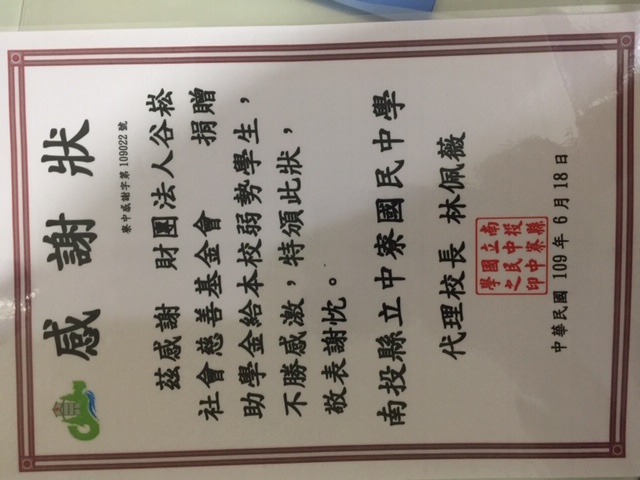 感謝狀
寮中感謝字第 109022 號
茲感謝 財團法人谷崧
社會慈善基金會 捐贈
助學金給本校弱勢學生，
不勝感激，特頒此狀，
敬表謝忱。
南投縣立中寮國民中學
代理校長 林佩薇
南投縣
立中寮
國民中
學之印
中華民國 109 年 6 月 18 日